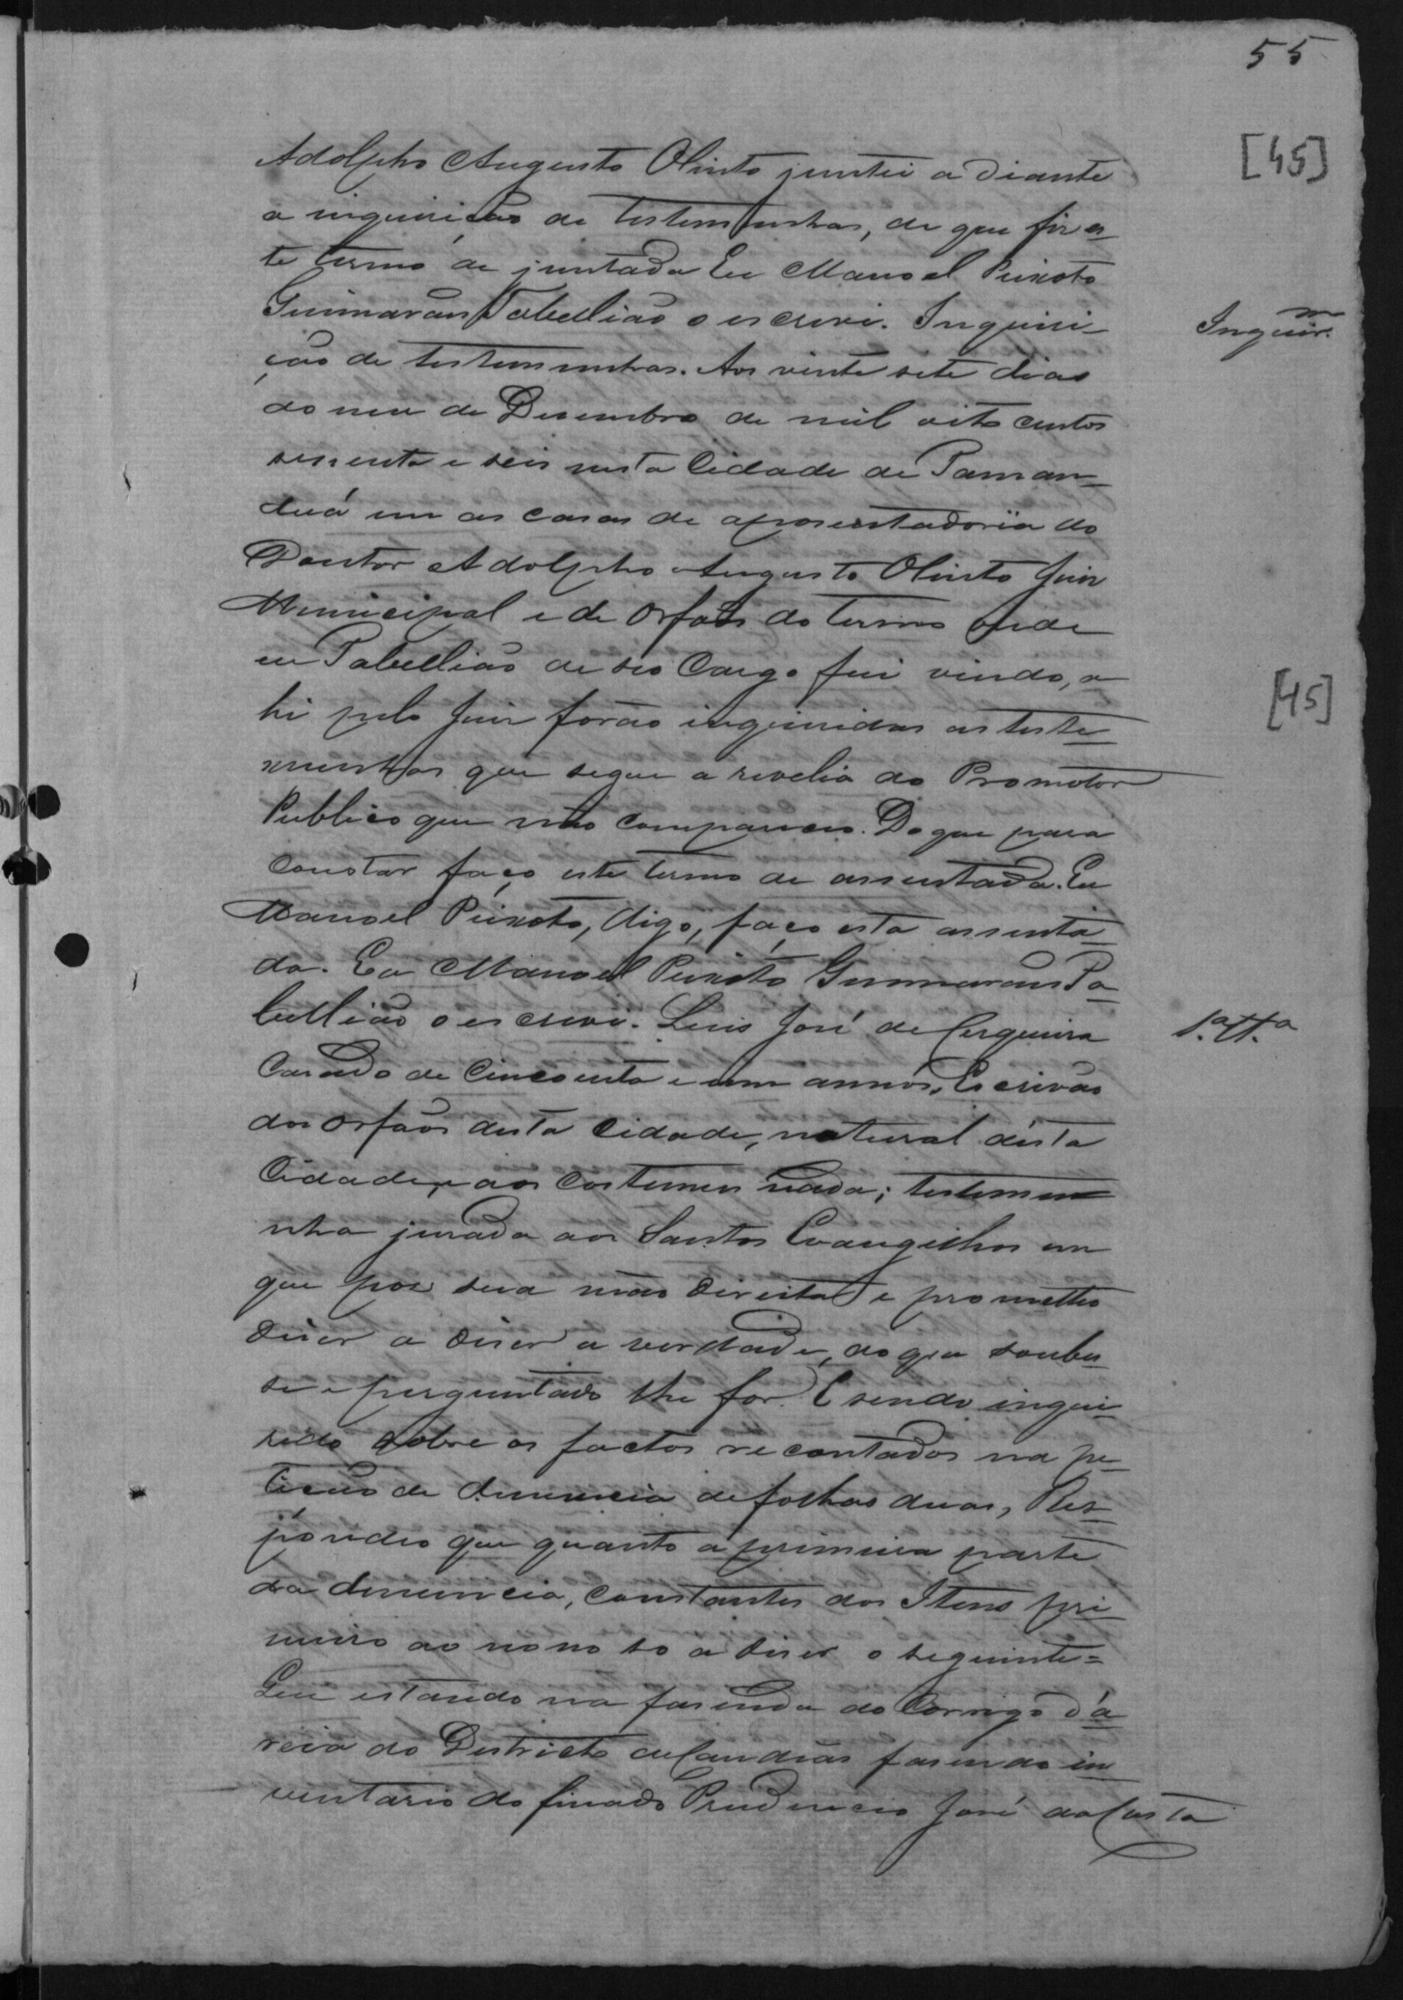 55
[45]
Adolpho Augusto Olinto juntei a diante
a inquirição de testemunhas, de que fiz es-
te termo de juntada Eu Manoel Peixoto
Guimarães Tabellião o escrevi. Inquiri-
Inquir.m
ção de testemunhas. Aos vinte sete dias
do mez de Desembro de mil oito centos
sessenta e seis nesta Cidade de Taman-
duá em as casas de aposentadoria do
Doutor Adolpho Augusto Olinto Juis
Municipal e de orfaõs do termo onde
eu Tabellião de seo Cargo fui vindo, a
[45]
hi pelo Juis forão inqueridas as teste-
munhas que segue a revelia do Promotor
Publico que não compareceo. Do que para
constar faço este termo de assentada. Eu
Manoel Peixoto, digo, faço esta assenta-
da. Eu Manoel Peixoto Guimarães Ta-
bellião o escrevi. Luis José de Cerqueira
1.ª T.ª
Casado de Cincoenta e um annos, Escrivão
dos orfaõs desta Cidade, natural desta
Cidade, e aos costumes nada; testemu
nha jurada aos Santos Evangelhos em
que pos sua mão direita e prometteo
diser a diser a verdade, do que soubes-
se e perguntado lhe for. E sendo inque-
rido sobre os factos recontados na pe-
tição de denuncia de folhas duas, Res-
pondeo que quanto a primeira parte
da denuncia, constantes dos Itens pri-
meiro ao nono so a diser o seguinte=
Que estando na fasenda do Corrigo d'á-
reia do Districto de Candeias fasendo in-
ventario do finado Prudencio José da Costa